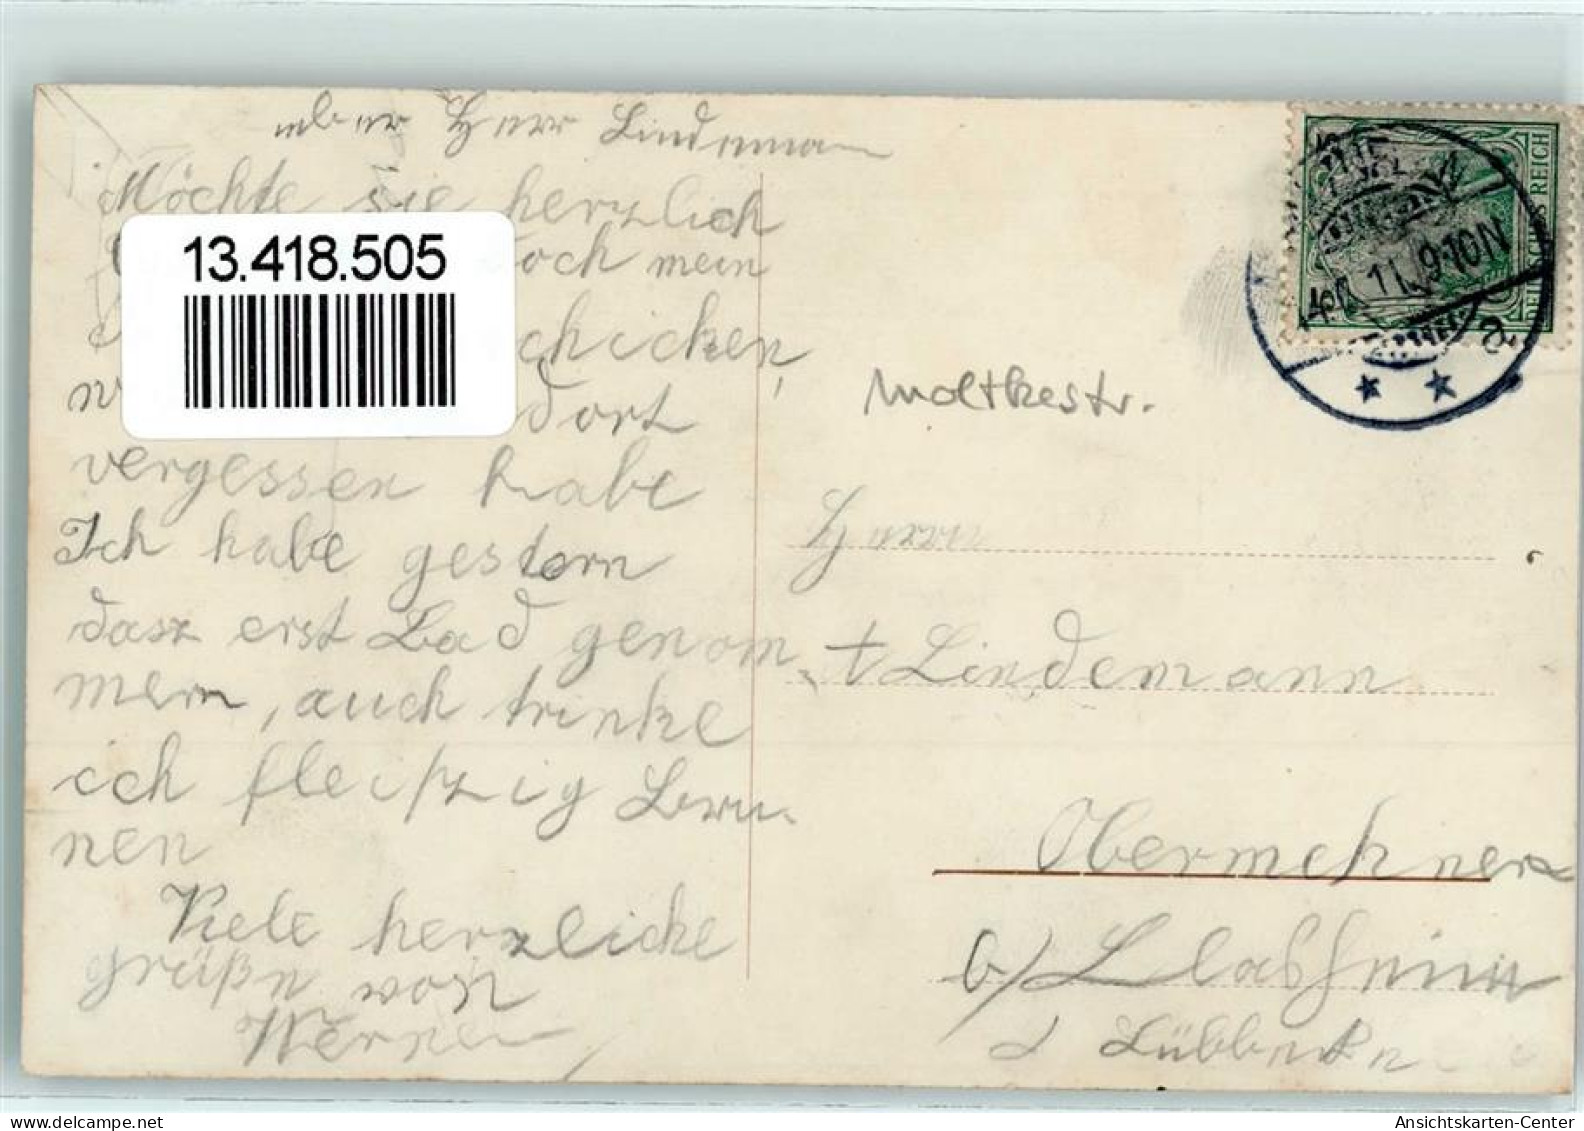 Herr Lindeman
Möchte sie herzlich
doch mein
schicken,
dort
vergessen habe
Ich habe gestern
dasz erst Bad genom
men, auch trinke
ich fleiszig Brun
nen
Viele herzliche
grüße von
Werner
13.418.505
DEUTSCHES REICH
11. 9-10N
a
Moltkestr.
Herrn
t Lindemann
Obermehnen
b/
Lübbecke
Ansichtskarten-Center